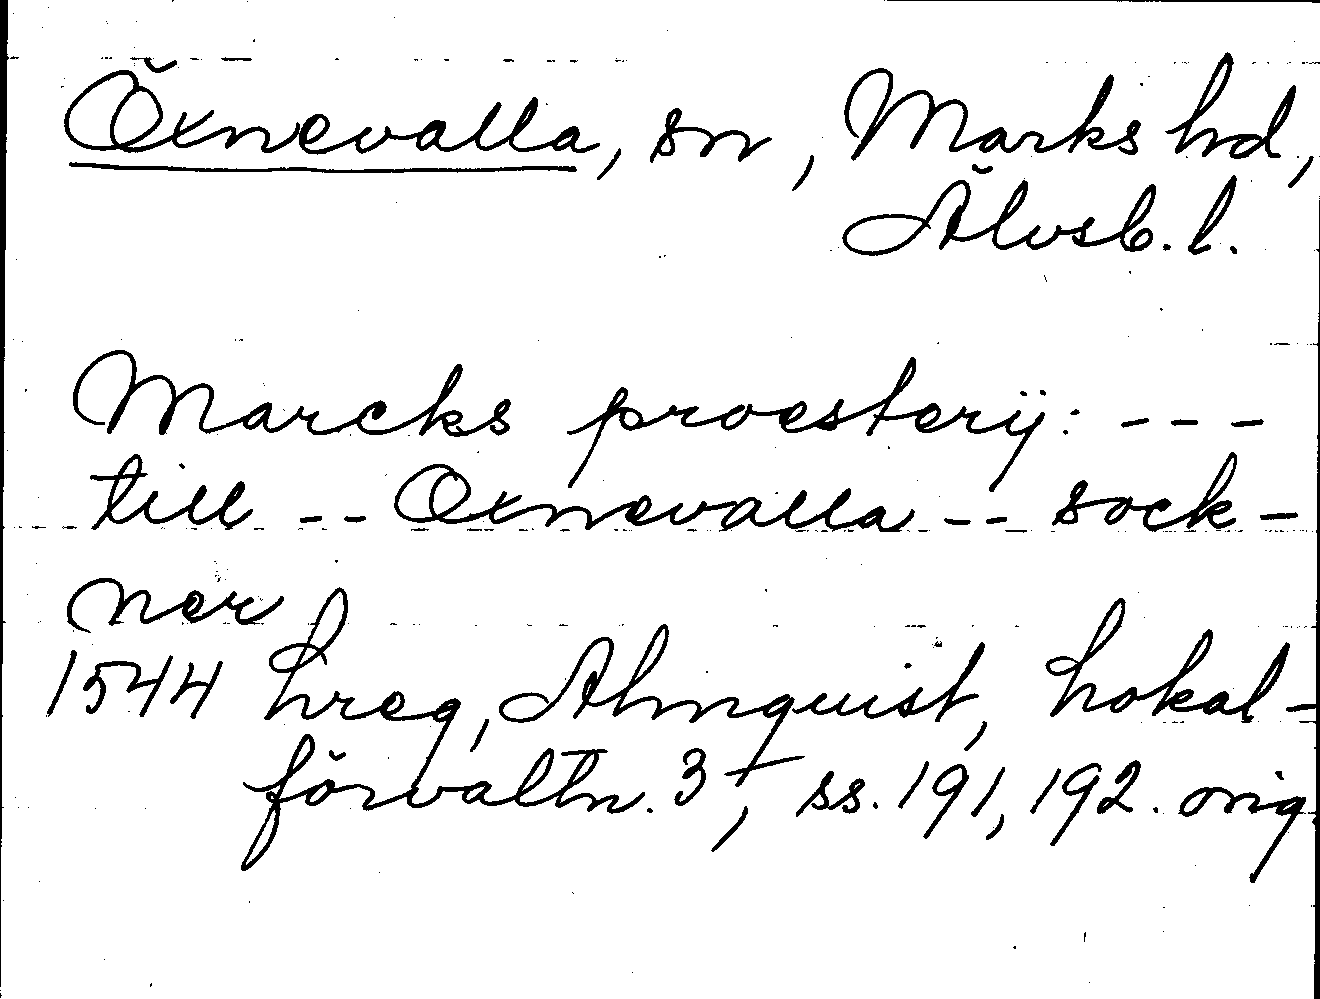 Öxnevalla, sn, Marks hd,
Älvsb. l.
Marcks proesterij: ---
till -- Oxnevalla -- sock-
ner
1544 Lreg, Almquist, Lokal-
förvaltn. 3, ss. 191, 192. orig.